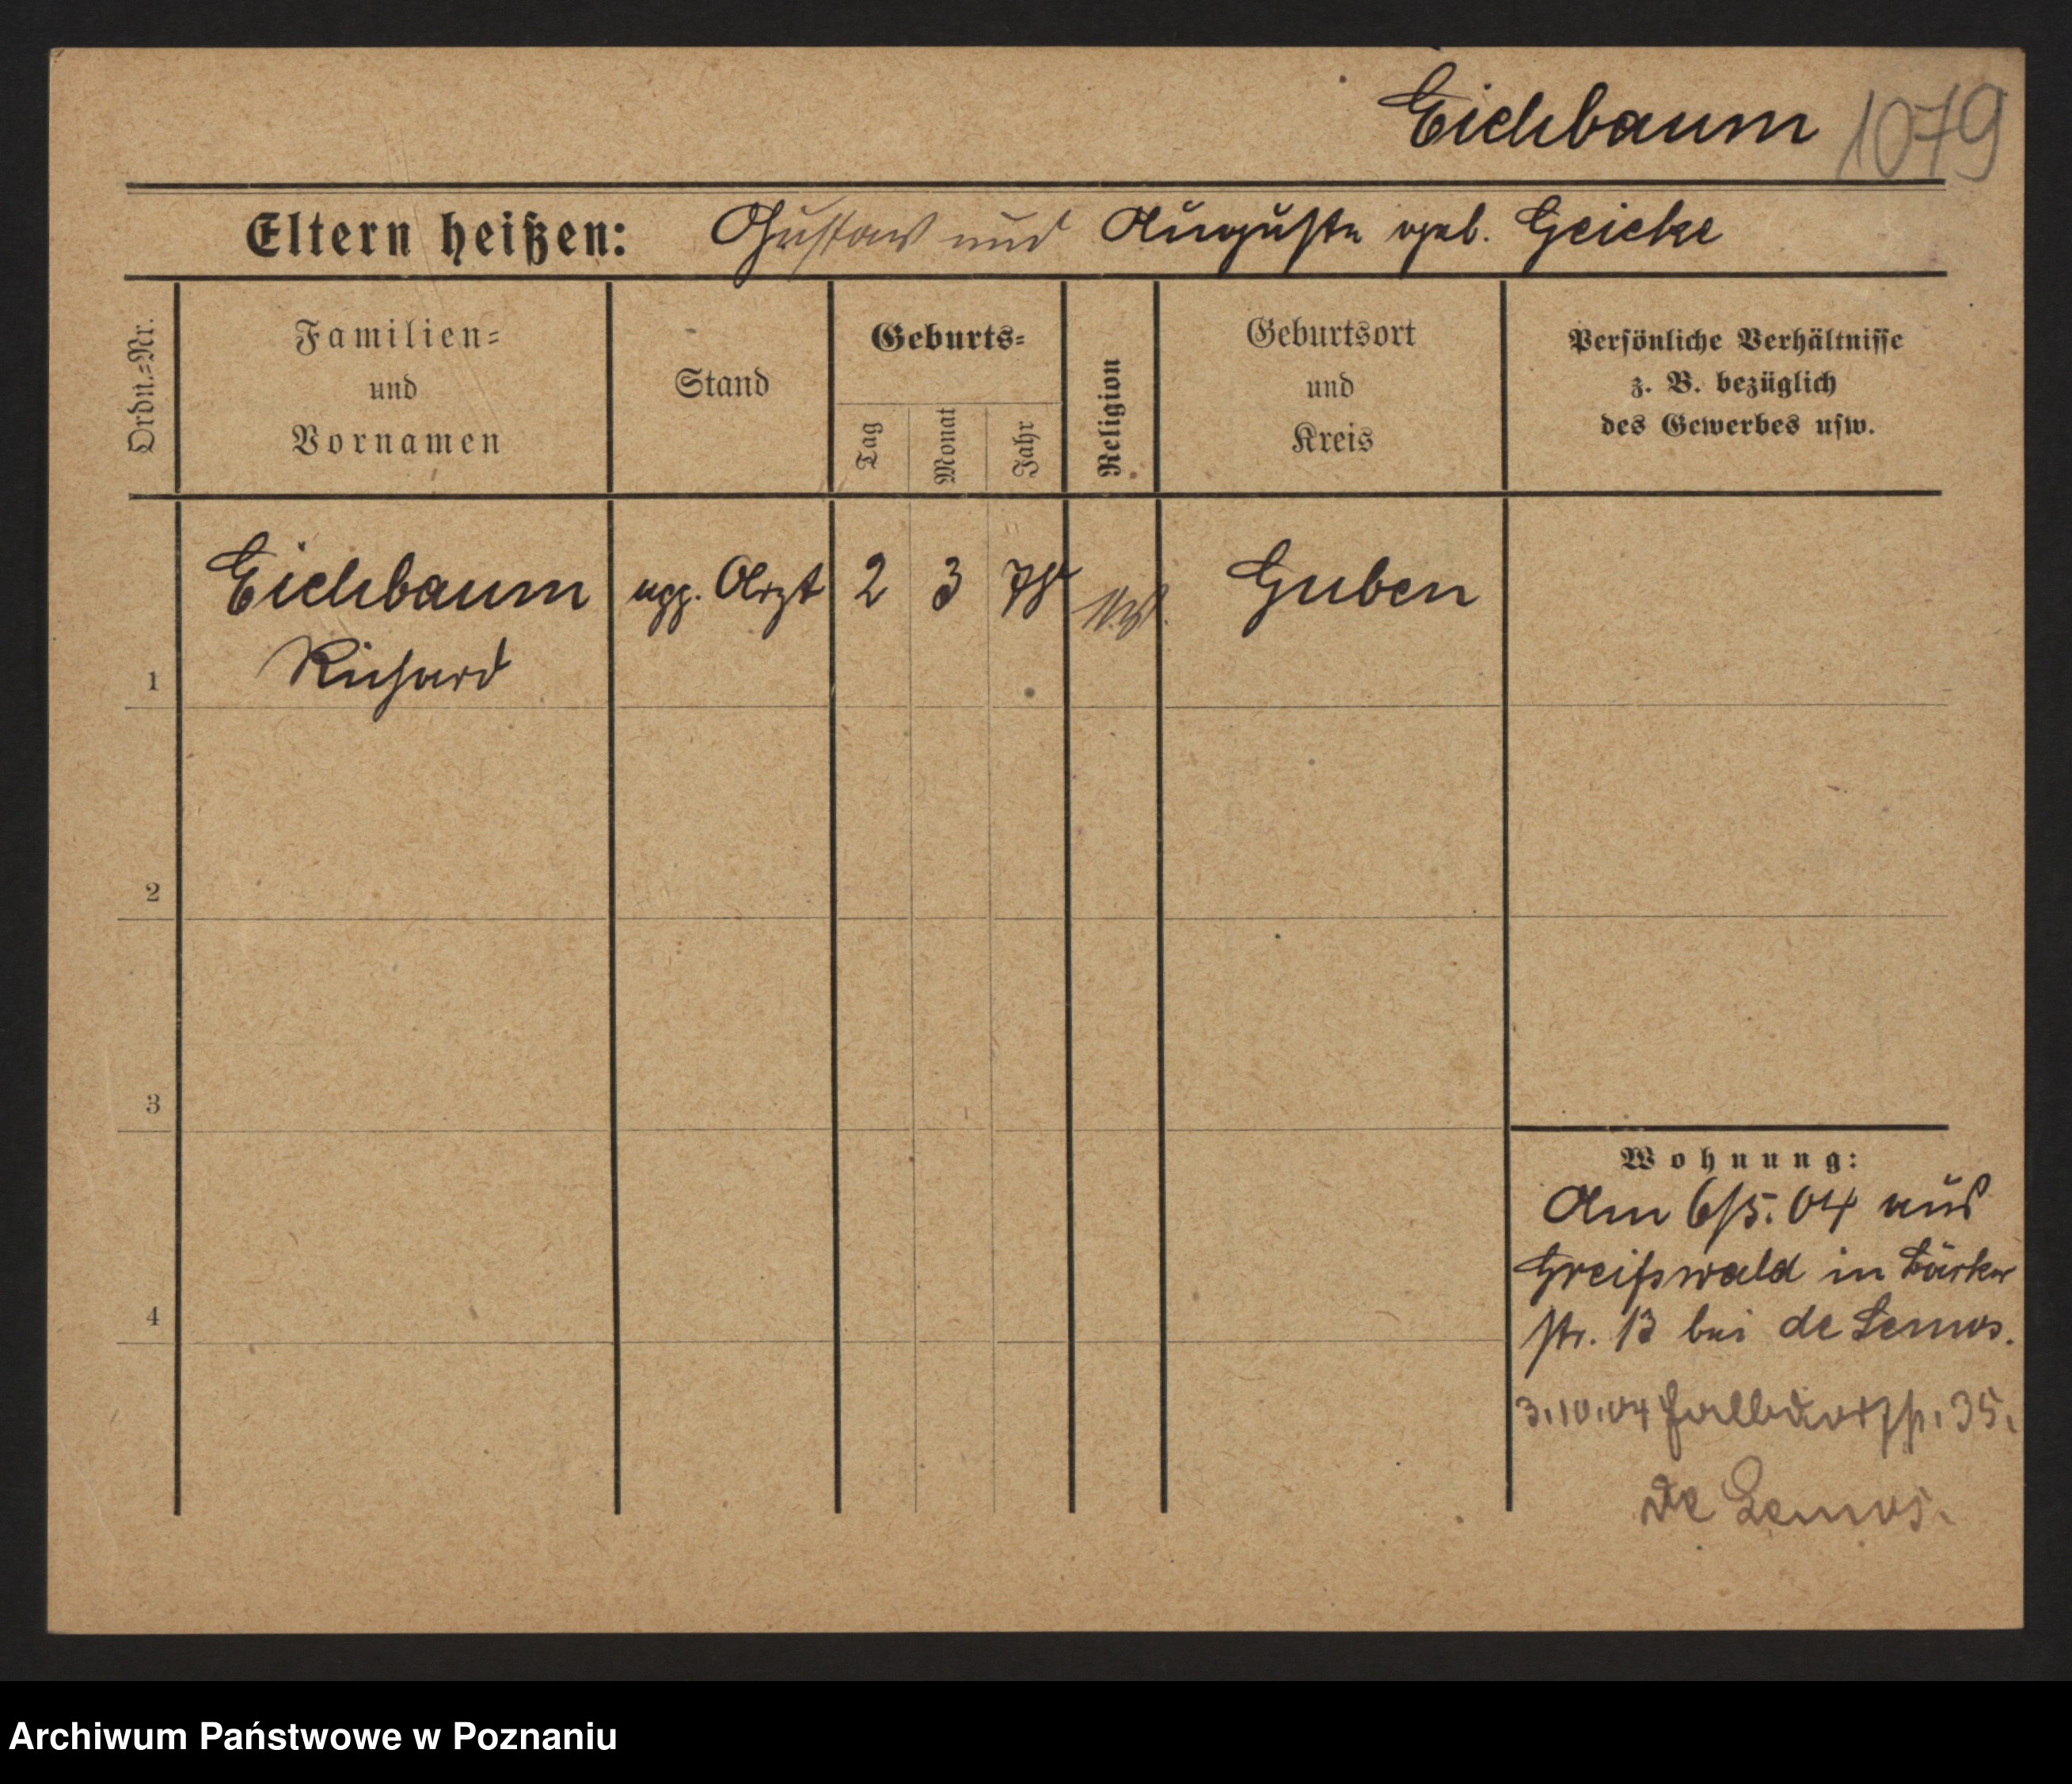 Eichbaum 1079
Eltern heißen: Gustav und Auguste geb. Geicke
Ordn.=Nr.
Familien=
und
Vornamen
Stand
Geburts=
Tag
Monat
Jahr
Religion
Geburtsort
und
Kreis
Persönliche Verhältnisse
z. B. bezüglich
des Gewerbes usw.
Eichbaum Arzt 2 3 78 Guben
Richard
1
2
3
4
Wohnung:
Am 6/5. 04 aus
Greifswald in Bäcker
str. 13 bei de Lemos.
3.10.04 35.
de Lemos.
Archiwum Państwowe w Poznaniu